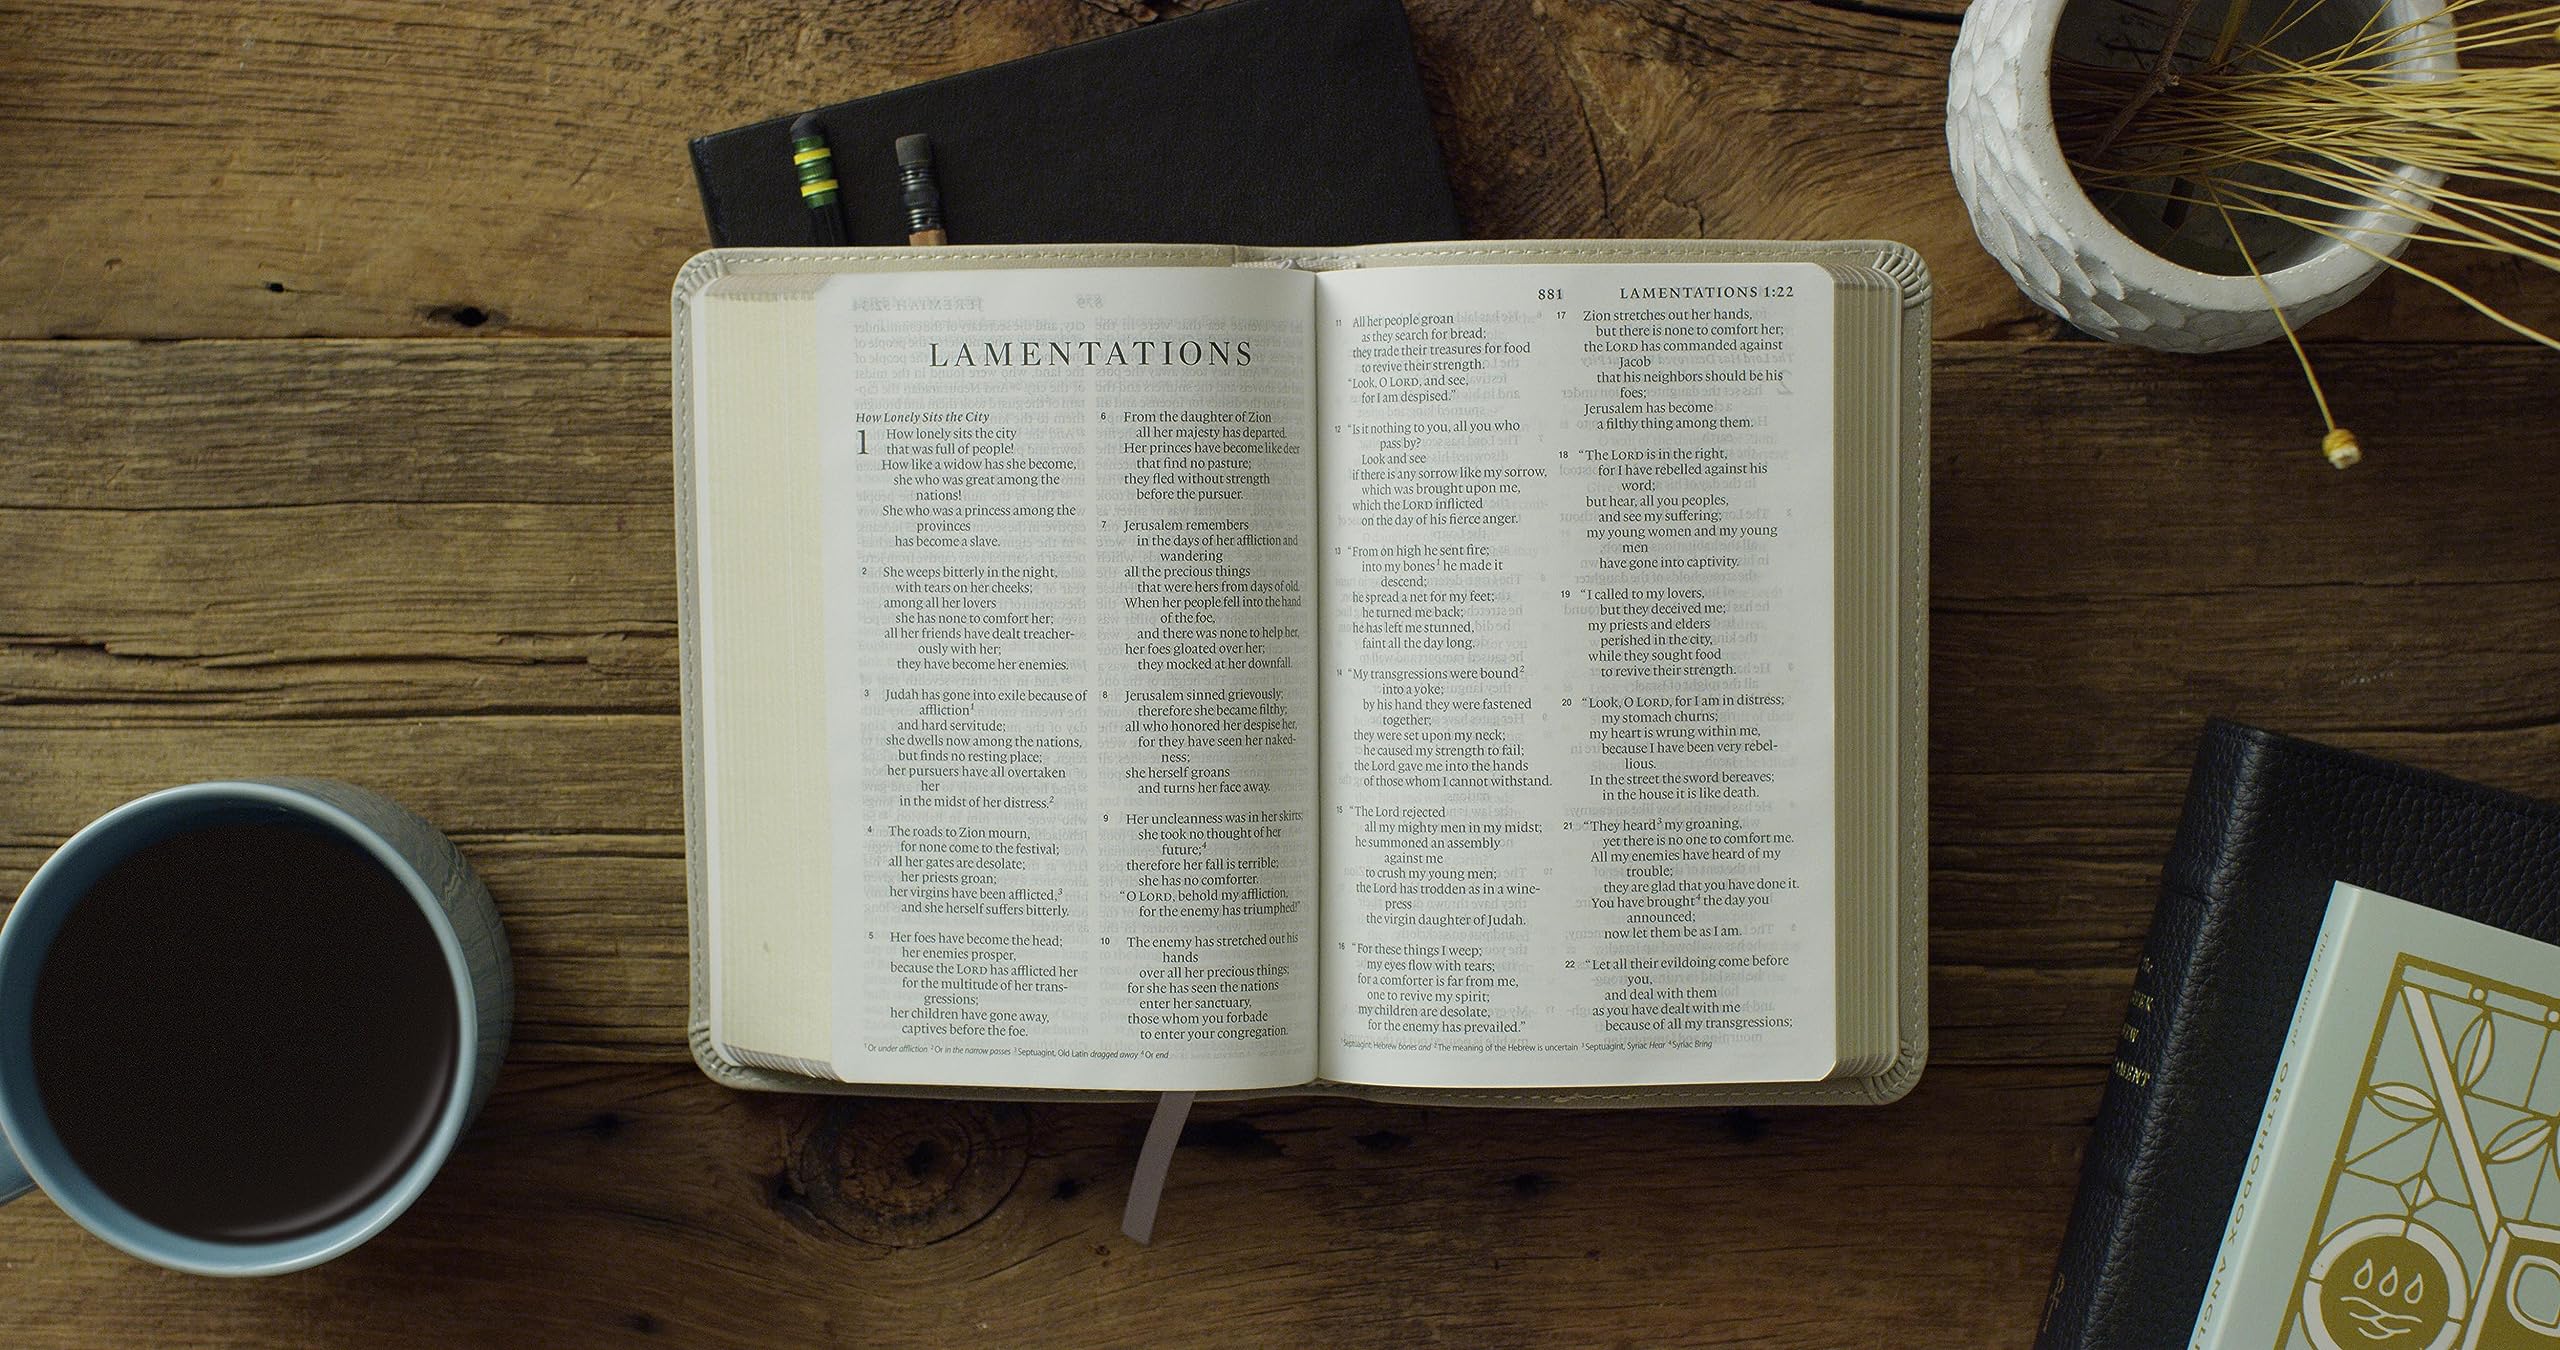 LAMENTATIONS
How Lonely Sits the City
1 How lonely sits the city
that was full of people!
How like a widow has she become,
she who was great among the
nations!
She who was a princess among the
provinces
has become a slave.
2 She weeps bitterly in the night,
with tears on her cheeks;
among all her lovers
she has none to comfort her;
all her friends have dealt treacher-
ously with her;
they have become her enemies.
3 Judah has gone into exile because of
affliction1
and hard servitude;
she dwells now among the nations,
but finds no resting place;
her pursuers have all overtaken
her
in the midst of her distress.2
4 The roads to Zion mourn,
for none come to the festival;
all her gates are desolate;
her priests groan;
her virgins have been afflicted,3
and she herself suffers bitterly.
5 Her foes have become the head;
her enemies prosper,
because the LORD has afflicted her
for the multitude of her trans-
gressions;
her children have gone away,
captives before the foe.
6 From the daughter of Zion
all her majesty has departed.
Her princes have become like deer
that find no pasture;
they fled without strength
before the pursuer.
7 Jerusalem remembers
in the days of her affliction and
wandering
all the precious things
that were hers from days of old.
When her people fell into the hand
of the foe,
and there was none to help her,
her foes gloated over her;
they mocked at her downfall.
8 Jerusalem sinned grievously;
therefore she became filthy;
all who honored her despise her,
for they have seen her naked-
ness;
she herself groans
and turns her face away.
9 Her uncleanness was in her skirts;
she took no thought of her
future;4
therefore her fall is terrible;
she has no comforter.
“O LORD, behold my affliction,
for the enemy has triumphed!”
10 The enemy has stretched out his
hands
over all her precious things;
for she has seen the nations
enter her sanctuary,
those whom you forbade
to enter your congregation.
1 Or under affliction 2 Or in the narrow passes 3 Septuagint, Old Latin dragged away 4 Or end
881 LAMENTATIONS 1:22
11 All her people groan
as they search for bread;
they trade their treasures for food
to revive their strength.
“Look, O LORD, and see,
for I am despised.”
12 “Is it nothing to you, all you who
pass by?
Look and see
if there is any sorrow like my sorrow,
which was brought upon me,
which the LORD inflicted
on the day of his fierce anger.
13 “From on high he sent fire;
into my bones1 he made it
descend;
he spread a net for my feet;
he turned me back;
he has left me stunned,
faint all the day long.
14 “My transgressions were bound2
into a yoke;
by his hand they were fastened
together;
they were set upon my neck;
he caused my strength to fail;
the Lord gave me into the hands
of those whom I cannot withstand.
15 “The Lord rejected
all my mighty men in my midst;
he summoned an assembly
against me
to crush my young men;
the Lord has trodden as in a wine-
press
the virgin daughter of Judah.
16 “For these things I weep;
my eyes flow with tears;
for a comforter is far from me,
one to revive my spirit;
my children are desolate,
for the enemy has prevailed.”
17 Zion stretches out her hands,
but there is none to comfort her;
the LORD has commanded against
Jacob
that his neighbors should be his
foes;
Jerusalem has become
a filthy thing among them.
18 “The LORD is in the right,
for I have rebelled against his
word;
but hear, all you peoples,
and see my suffering;
my young women and my young
men
have gone into captivity.
19 “I called to my lovers,
but they deceived me;
my priests and elders
perished in the city,
while they sought food
to revive their strength.
20 “Look, O LORD, for I am in distress;
my stomach churns;
my heart is wrung within me,
because I have been very rebel-
lious.
In the street the sword bereaves;
in the house it is like death.
21 “They heard3 my groaning,
yet there is no one to comfort me.
All my enemies have heard of my
trouble;
they are glad that you have done it.
You have brought4 the day you
announced;
now let them be as I am.
22 “Let all their evildoing come before
you,
and deal with them
as you have dealt with me
because of all my transgressions;
1 Septuagint; Hebrew bones and 2 The meaning of the Hebrew is uncertain 3 Septuagint, Syriac Hear 4 Syriac Bring
ORTHODOX